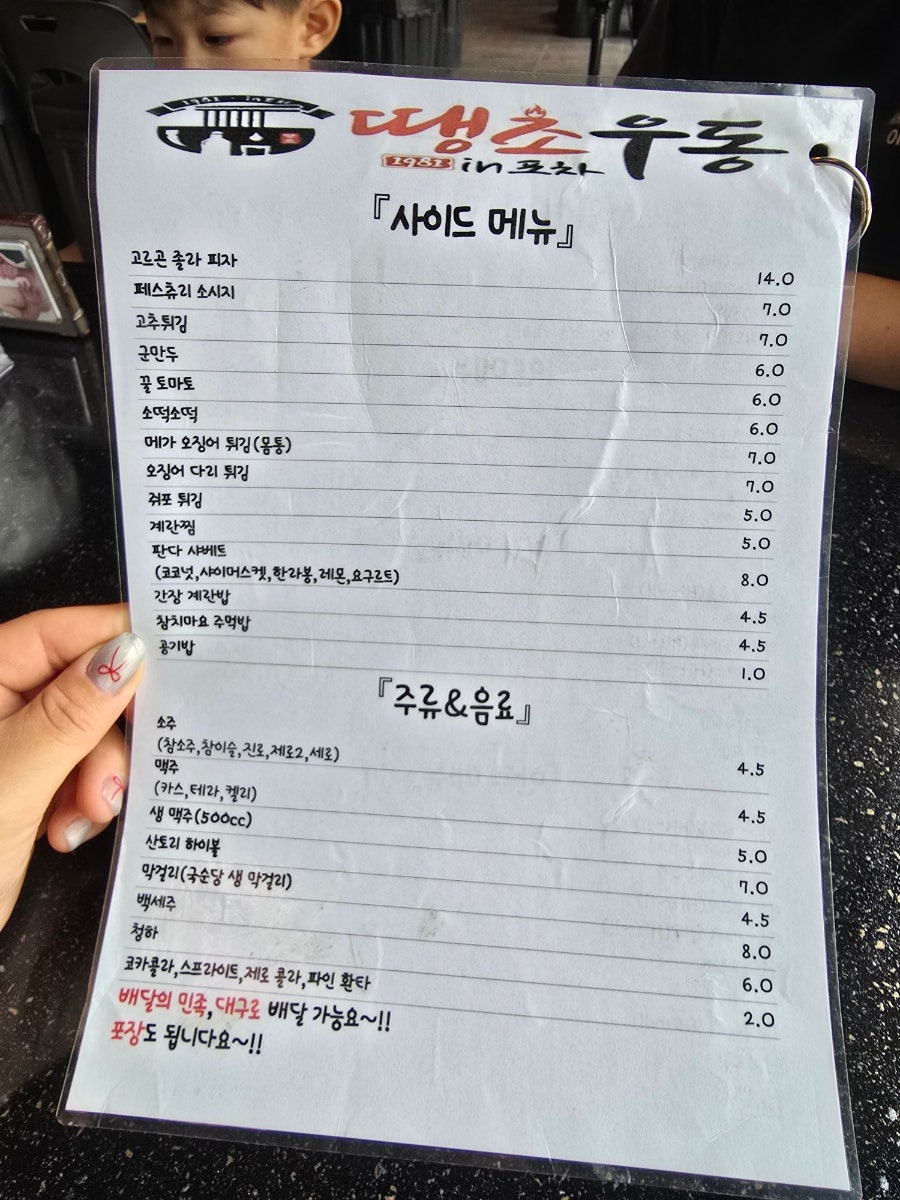 땡초우동
1981 in 포차
『사이드 메뉴』
고르곤 졸라 피자 14.0
페스츄리 소시지 7.0
고추튀김 7.0
군만두 6.0
꿀 토마토 6.0
소떡소떡 6.0
메가 오징어 튀김(몸통) 7.0
오징어 다리 튀김 7.0
쥐포 튀김 5.0
계란찜 5.0
판다 샤베트
(코코넛,샤이머스켓,한라봉,레몬,요구르트) 8.0
간장 계란밥 4.5
참치마요 주먹밥 4.5
공기밥 1.0
『주류&음료』
소주
(참소주,참이슬,진로,제로2,세로) 4.5
맥주
(카스,테라,켈리) 4.5
생 맥주(500cc) 5.0
산토리 하이볼 7.0
막걸리(국순당 생 막걸리) 4.5
백세주 8.0
청하 6.0
코카콜라,스프라이트,제로 콜라,파인 환타 2.0
배달의 민족, 대구로 배달 가능요~!!
포장도 됩니다요~!!